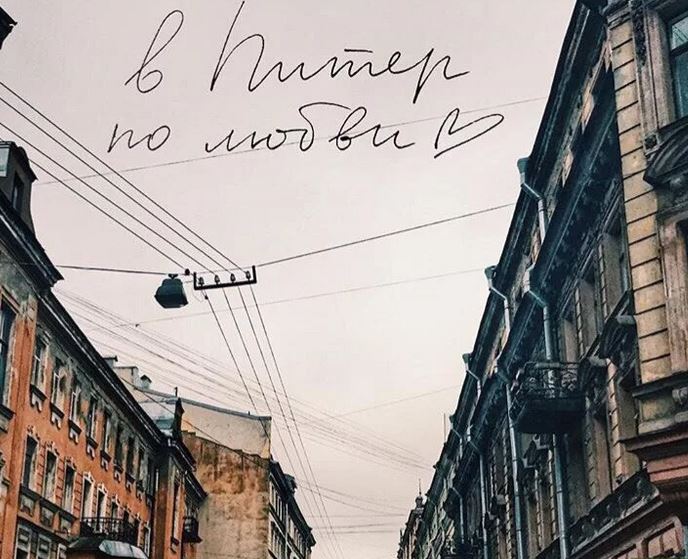 в Питер
по любви ♡